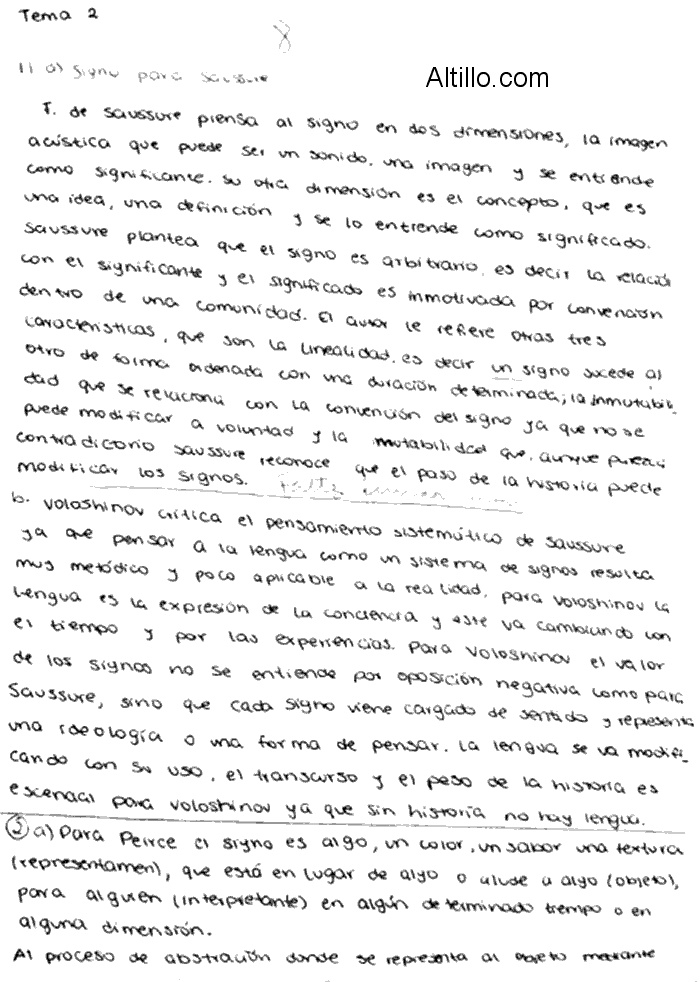 Tema 2
8
Altillo.com
1) a) Signo para Saussure
F. de Saussure piensa al signo en dos dimensiones, la imagen
acústica que puede ser un sonido, una imagen y se entiende
como significante. su otra dimensión es el concepto, que es
una idea, una definición y se lo entiende como significado.
Saussure plantea que el signo es arbitrario, es decir la relación
con el significante y el significado es inmotivada por convención
dentro de una comunidad. El autor le refiere otras tres
características, que son la linealidad, es decir un signo sucede al
otro de forma ordenada con una duración determinada; la inmutabili_
dad que se relaciona con la convención del signo ya que no se
puede modificar a voluntad y la mutabilidad que, aunque parezca
contradictorio Saussure reconoce que el paso de la historia puede
modificar los signos.
b. Voloshinov critica el pensamiento sistemático de Saussure
ya que pensar a la lengua como un sistema de signos resulta
muy metódico y poco aplicable a la realidad, para Voloshinov la
lengua es la expresión de la conciencia y este va cambiando con
el tiempo y por las experiencias. Para Voloshinov el valor
de los signos no se entiende por oposición negativa como para
Saussure, sino que cada signo viene cargado de sentido y representa
una ideología o una forma de pensar. La lengua se va modifi_
cando con su uso, el transcurso y el peso de la historia es
escencial para Voloshinov ya que sin historia no hay lengua.
2) a) Para Peirce el signo es algo, un color, un sabor una textura
(representamen), que está en lugar de algo o alude a algo (objeto),
para alguien (interpretante) en algún determinado tiempo o en
alguna dimensión.
Al proceso de abstracción donde se representa al objeto mediante